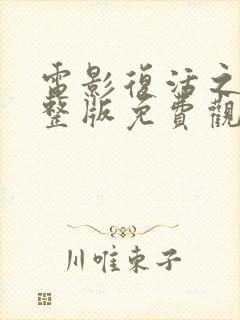 電影復活之
整版免費觀
川唯東子